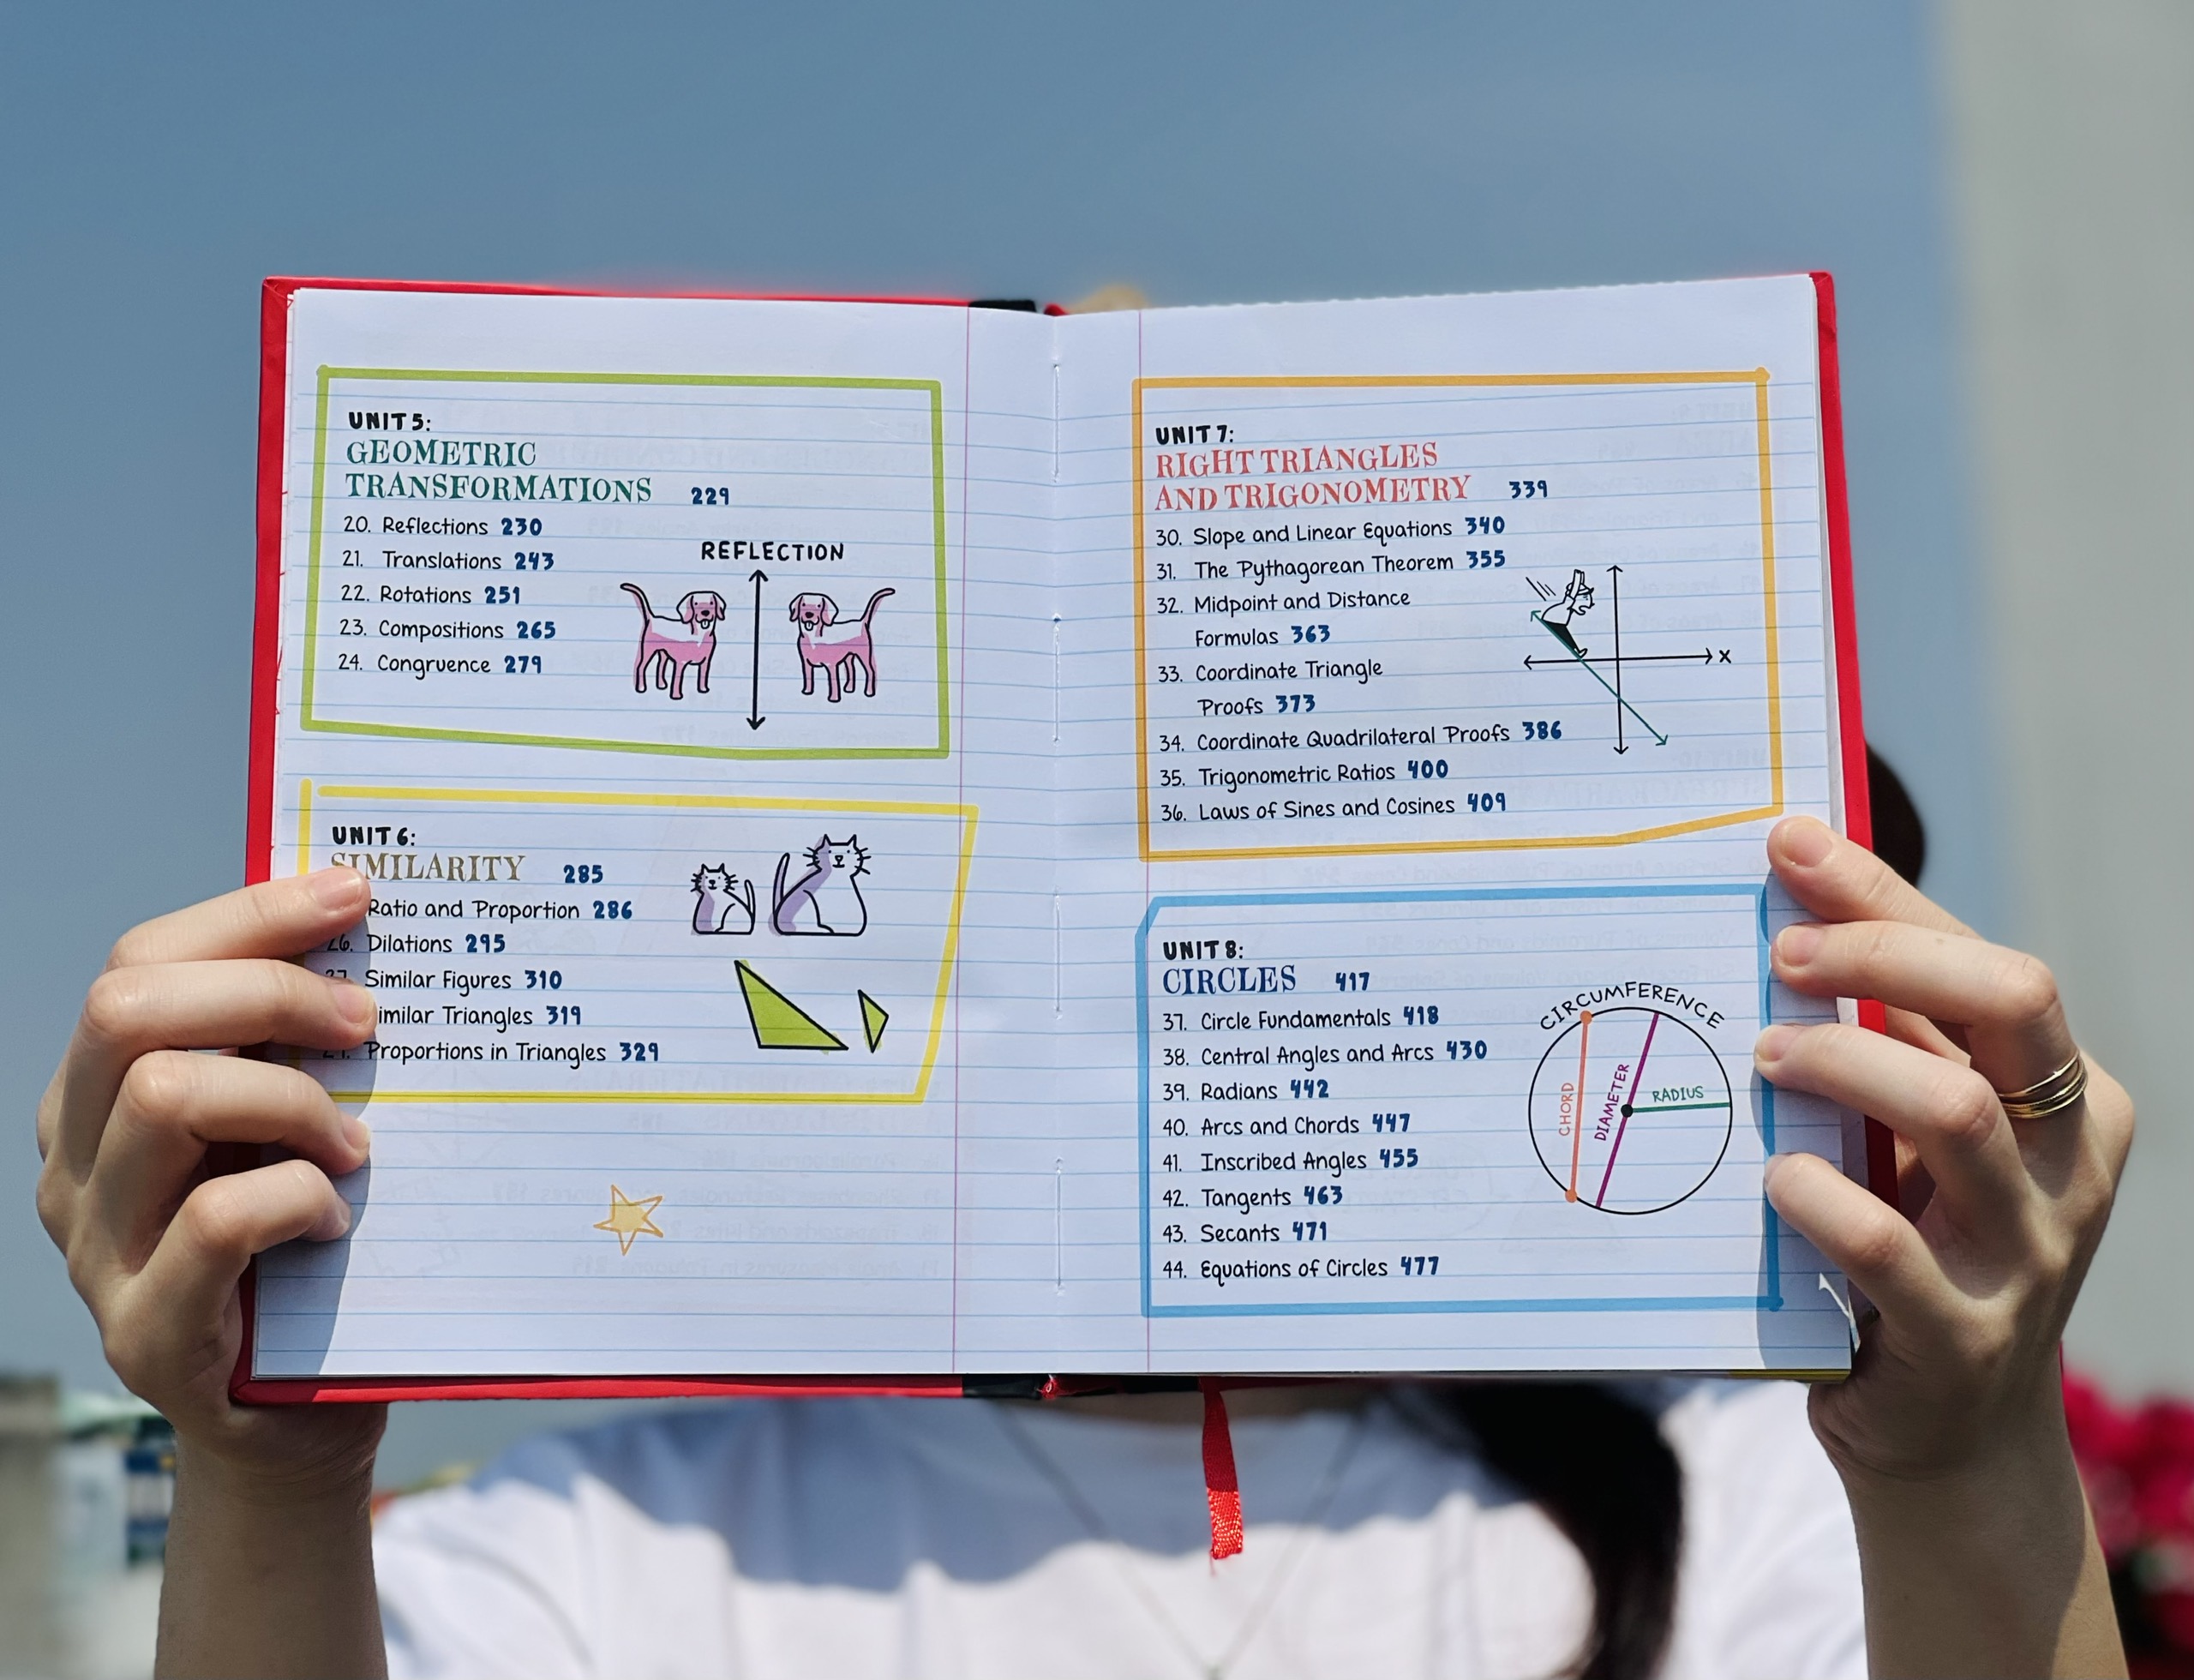 UNIT 5:
GEOMETRIC
TRANSFORMATIONS 229
20. Reflections 230
21. Translations 243
22. Rotations 251
23. Compositions 265
24. Congruence 279
REFLECTION
UNIT 6:
SIMILARITY 285
Ratio and Proportion 286
26. Dilations 295
27. Similar Figures 310
Similar Triangles 319
Proportions in Triangles 329
UNIT 7:
RIGHT TRIANGLES
AND TRIGONOMETRY 339
30. Slope and Linear Equations 340
31. The Pythagorean Theorem 355
32. Midpoint and Distance
Formulas 363
33. Coordinate Triangle
Proofs 373
34. Coordinate Quadrilateral Proofs 386
35. Trigonometric Ratios 400
36. Laws of Sines and Cosines 409
X
UNIT 8:
CIRCLES 417
37. Circle Fundamentals 418
38. Central Angles and Arcs 430
39. Radians 442
40. Arcs and Chords 447
41. Inscribed Angles 455
42. Tangents 463
43. Secants 471
44. Equations of Circles 477
CIRCUMFERENCE
CHORD
DIAMETER
RADIUS